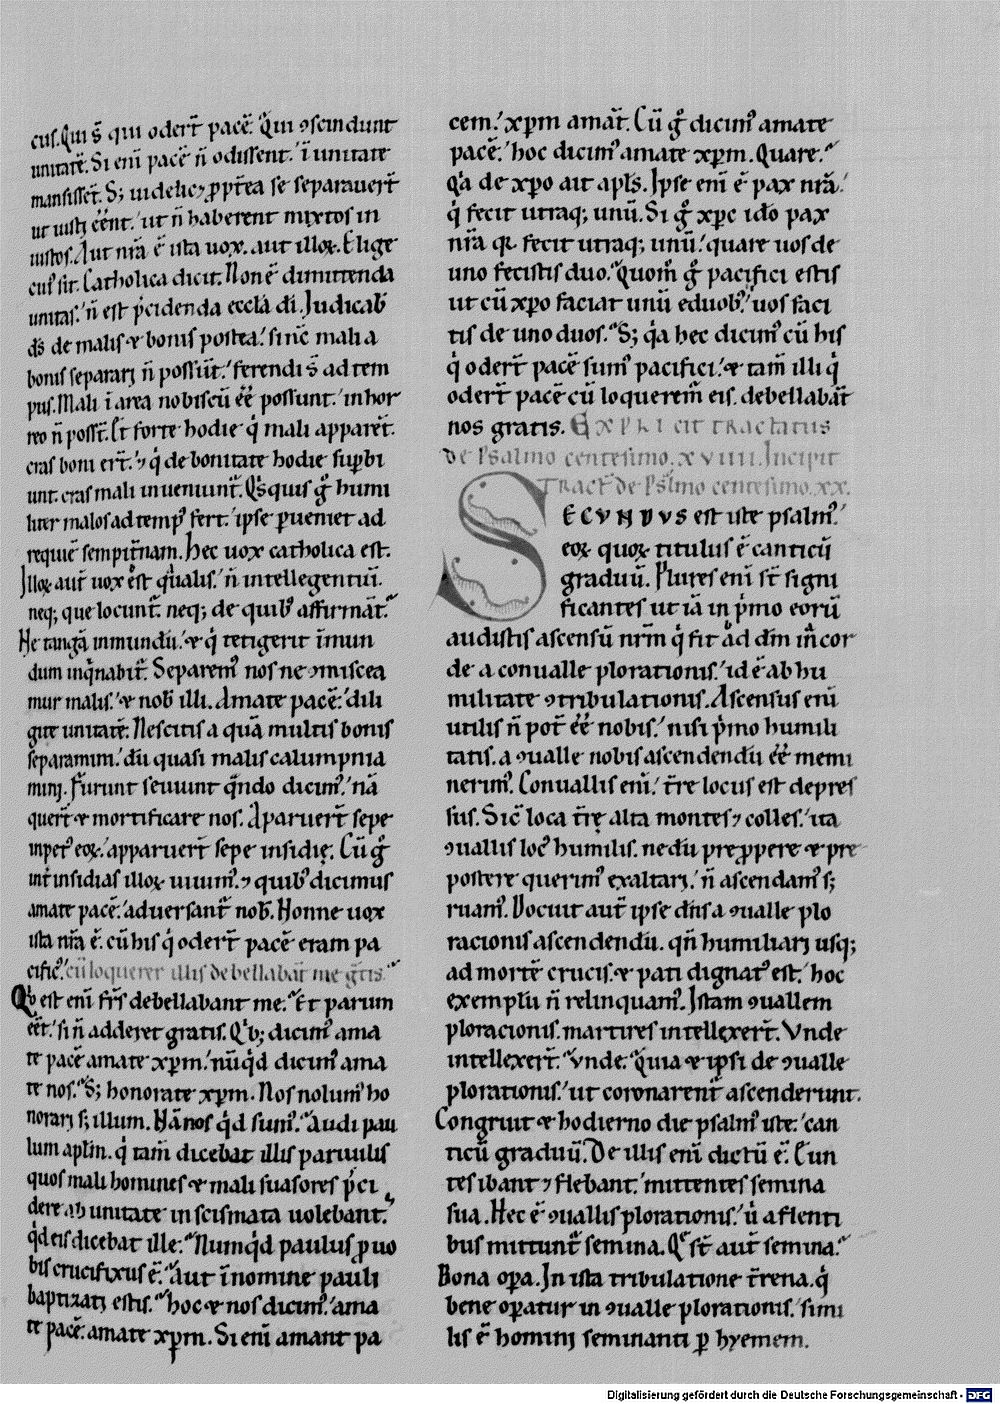 cus. Qui s̄ qui oder̄t pacē. Qui ꝯscindunt
unitatē. Si eni pacē n̄ odissent. ı̄ unitate
mansissēt. S; uidelicꝫ ꝓpt̄ea se separauer̄t
ut iusti ēēnt. ut n̄ haberent mixtos in
iustos. Aut nr̄a ē ista uox. aut illoꝝ. Elige
cuiꝰ sit. Catholica dicit. Non ē dimittenda
unitas. n̄ est p̄cidenda eccl̄a dī. Judicab̄
ds̄ de malis ⁊ bonis postea. si n̄c mali a
bonis separari n̄ possūt. ferendi s̄ ad tem
pus. Mali ı̄ area nobiscū ēē possunt. in hor
reo n̄ poss̄t. Et forte hodie q̇ mali apparēt.
cras boni er̄t. ⁊ q̇ de bonitate hodie suꝑbi
unt. cras mali inueniunt̄. Qͥsquis g̊ humi
liter malos ad tempꝰ fert. ipse ꝑueniet ad
requiē sempit̄nam. Hec uox catholica est.
Illoꝝ aut̄ uox ēst qualis. n̄ intellegentiū.
neq; que locunt̄. neq; de quibꝰ affirmāt.
Ne tangā inmundū. ⁊ q̇ tetigerit ı̄mun
dum inqͥnabit̄. Separemꝰ nos ne ꝯmiscea
mur malis. ⁊ nob̄ illi. Amate pacē. dili
gite unitatē. Nescitis a quā multis bonis
separamini. dū quasi malis calumpnia
mini. Furunt seuiunt qͣndo dicimꝰ. nā
quer̄t ⁊ mortificare nos. Aparuer̄t sepe
inpetꝰ eoꝝ. apparuer̄t sepe insidię. Cū g̊
int̄ insidias illoꝝ uiuimꝰ. ⁊ quibꝰ dicimus
amate pacē. aduersant̄ nob̄. Nonne uox
ista nr̄a ē. cū his q̇ oder̄t pacē eram pa
cificꝰ. cū loquerer illis debellabāt me gͣtis.
Qͥd est eni fr̄s debellabant me. Et parum
ēēt. si n̄ adderet gratis. Qͥb; dicimꝰ ama
te pacē amate xp̄m. nūqͥd dicimꝰ ama
te nos. S; honorate xp̄m. Nos nolumꝰ ho
norari s; illum. Nā nos qͥd sumꝰ. Audi pau
lum apl̄m. q̇ tam̄ dicebat illis paruulis
quos mali homines ⁊ mali suasores p̄ci
dere ab unitate in scismata uolebant.
qͥd eis dicebat ille. Numqͥd paulus ꝓ uo
bis crucifixus ē. aut ı̄ nomine pauli
baptizati estis. hoc ⁊ nos dicimꝰ. ama
te pacē. amate xp̄m. Si eni amant pa
cem. xp̄m amāt. Cū g̊ dicimꝰ amate
pacē. hoc dicimꝰ amate xp̄m. Quare.
Qͥa de xp̄o ait apl̄s. Ipse eni ē pax nr̄a.
q̇ fecit utraq; unū. Si g̊ xp̄c ido pax
nr̄a qͥ fecit utraq; unū. quare uos de
uno fecistis duo. Quom̄ g̊ pacifici estis
ut cū xp̄o faciat unū e duobꝰ. uos faci
tis de uno duos. S; qͥa hec dicimꝰ cū his
q̇ oder̄t pacē sumꝰ pacifici. ⁊ tam̄ illi q̇
oder̄t pacē cū loqueremꝰ eis. debellabāt
nos gratis. Explicit tractatus
de Psalmo centesimo. xviiii. Incipit
Tract̄ de Psalmo centesimo. xx.
SECUNDUS est iste psalmꝰ.
eoꝝ quoꝝ titulus ē canticū
graduū. Plures eni st̄ signi
ficantes ut iā in p̄mo eorū
audistis ascensū nr̄m q̇ fit ad dn̄m in cor
de a conualle plorationis. id ē ab hu
militate ꝯtribulationis. Ascensus eni
utilis n̄ pot̄ ēē nobis. nisi p̄mo humili
tatis. a ꝯualle nobis ascendendū ēē memi
nerimꝰ. Conuallis eni. tr̄e locus est depres
sus. Sic̄ loca tr̄ę alta montes ⁊ colles. ita
ꝯuallis locꝰ humilis. ne dū prepropere ⁊ pre
postere querimꝰ exaltari. n̄ ascendamꝰ s;
ruamꝰ. Docuit aut̄ ipse dn̄s a ꝯualle plo
racionis ascendendū. qn̄ humiliari usq;
ad mortē crucis. ⁊ pati dignatꝰ est. hoc
exemplū n̄ relinquamꝰ. Istam ꝯuallem
ploracionis. martires intellexer̄t. Unde
intellexer̄t. Unde. Quia ⁊ ipsi de ꝯualle
plorationis. ut coronarent̄ ascenderunt.
Congruit ⁊ hodierno die psalmꝰ iste. can
ticū graduū. De illis eni dictū ē. Eun
tes ibant ⁊ flebant. mittentes semina
sua. Hec ē ꝯuallis plorationis. u̇ a flenti
bus mittunt̄ semina. Qͤ st̄ aut̄ semina.
Bona oꝑa. In ista tribulatione tr̄ena. q̇
bene oꝑatur in ꝯualle plorationis. simi
lis ē homini seminanti ꝑ hyemem.
Digitalisierung gefördert durch die Deutsche Forschungsgemeinschaft - DFG